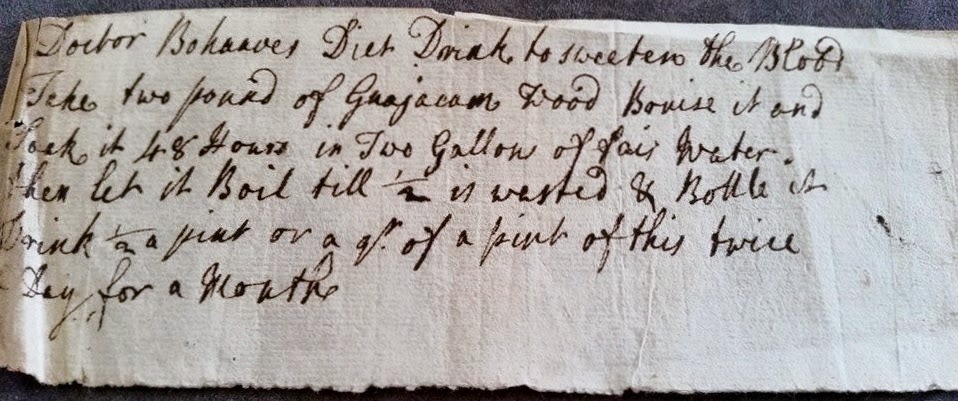 Doctor Bohaaves Diet Drink to sweeten the Blood
Teke two pound of Guajacam wood Bouise it and
Soak it 48 Hours in Two Gallons of fair Water.
then let it Boil till 1/2 is wasted & Bottle it
Drink 1/2 a pint or a qr. of a pint of this twice
Day for a Month